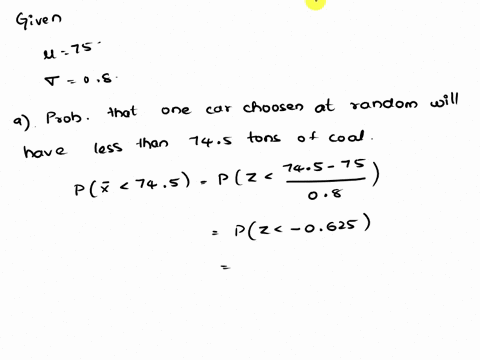 Given
μ = 75
σ = 0.8
a) Prob. that one car choosen at random will
have less than 74.5 tons of coal.
P(x̄ < 74.5) = P(Z < (74.5 - 75)/0.8)
= P(Z < -0.625)
=